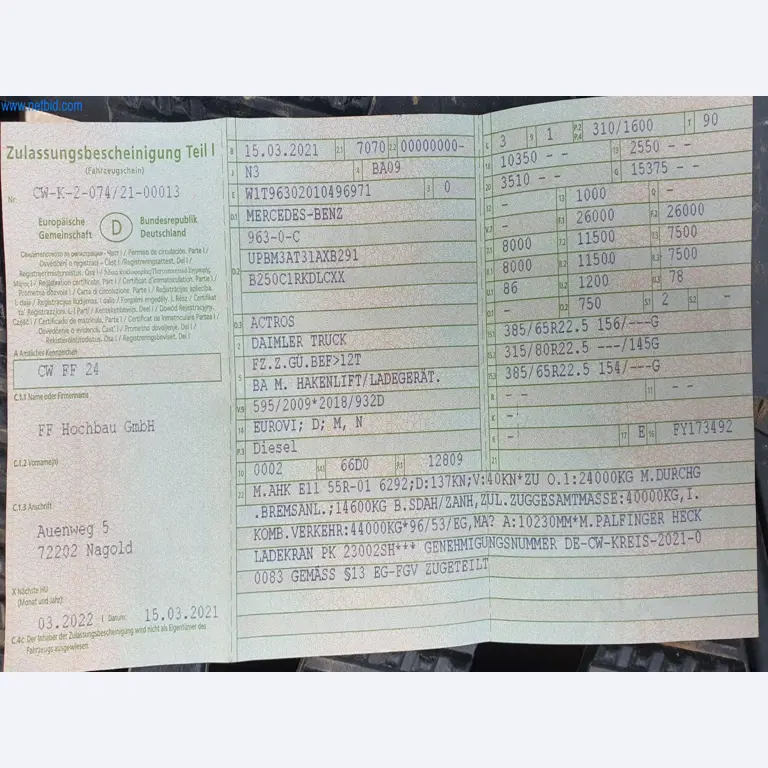 www.netbid.com
Zulassungsbescheinigung Teil I
(Fahrzeugschein)
Nr. CW-K-2-074/21-00013
Europäische Gemeinschaft D Bundesrepublik Deutschland
A Amtliches Kennzeichen
CW FF 24
C.1.1 Name oder Firmenname
FF Hochbau GmbH
C.1.2 Vorname(n)
C.1.3 Anschrift
Auenweg 5
72202 Nagold
X Nächste HU
(Monat und Jahr)
03.2022 I Datum: 15.03.2021
C.4c Der Inhaber der Zulassungsbescheinigung wird nicht als Eigentümer des
Fahrzeugs ausgewiesen.
B 15.03.2021 2.1 7070 2.2 00000000-
J N3 4 BA09
E W1T96302010496971 3 0
D.1 MERCEDES-BENZ
963-0-C
D.2 UPBM3AT31AXB291
B250C1RKDLCXX
D.3 ACTROS
2 DAIMLER TRUCK
5 FZ.Z.GÜ.BEF>12T
BA M. HAKENLIFT/LADEGERÄT.
V.9 595/2009*2018/932D
14 EUROVI; D; M, N
P.3 Diesel
10 0002 14.1 66D0 P.1 12809
L 3 9 1 P.2 P.4 310/1600 T 90
18 10350 - - 19 2550 - -
20 3510 - - G 15375 - -
12 - 13 1000 Q -
V.7 - F.1 26000 F.2 26000
7.1 8000 7.2 11500 7.3 7500
8.1 8000 8.2 11500 8.3 7500
U.1 86 U.2 1200 U.3 78
O.1 - O.2 750 S.1 2 S.2 -
15.1 385/65R22.5 156/---G
15.2 315/80R22.5 ---/145G
15.3 385/65R22.5 154/---G
R - 11 - -
K -
6 - 17 E 16 FY173492
21
22 M.AHK E11 55R-01 6292;D:137KN;V:40KN*ZU O.1:24000KG M.DURCHG
.BREMSANL.;14600KG B.SDAH/ZANH,ZUL.ZUGGESAMTMASSE:40000KG,I.
KOMB.VERKEHR:44000KG*96/53/EG,MA? A:10230MM*M.PALFINGER HECK
LADEKRAN PK 23002SH*** GENEHMIGUNGSNUMMER DE-CW-KREIS-2021-0
0083 GEMÄSS §13 EG-FGV ZUGETEILT